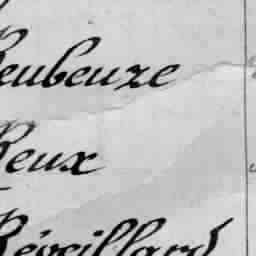 Reubeuze
Reux
Réveillard